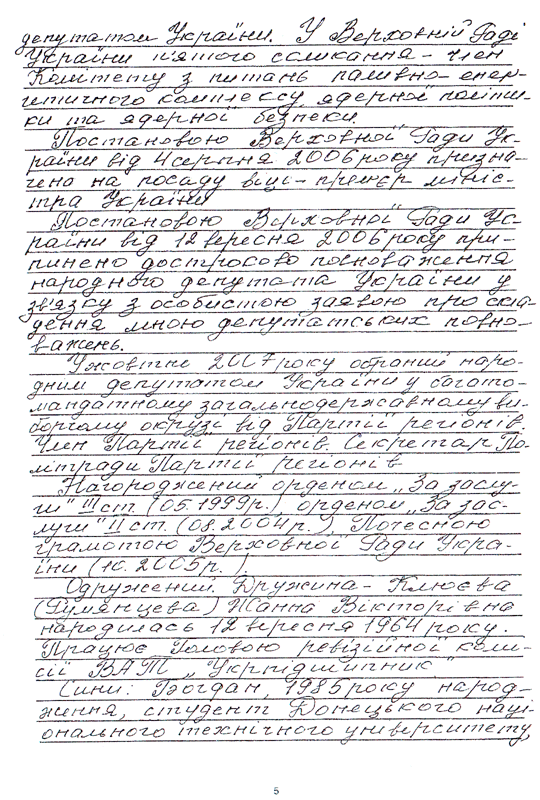 депутатом України. У Верховній Раді
України п'ятого скликання - член
Комітету з питань паливно-енер-
гетичного комплексу, ядерної політи-
ки та ядерної безпеки.
Постановою Верховної Ради Ук-
раїни від 4 серпня 2006 року призна-
чено на посаду віце-прем'єр-мініс-
тра України
Постановою Верховної Ради Ук-
раїни від 12 вересня 2006 року при-
пинено достроково повноваження
народного депутата України у
зв'язку з особистою заявою про скла-
дення мною депутатських повно-
важень.
У жовтні 2007 року обраний наро-
дним депутатом України у багато-
мандатному загальнодержавному ви-
борчому окрузі від Партії регіонів.
Член Партії регіонів. Секретар По-
літради Партії регіонів
Нагороджений орденом „За заслу-
ги" III ст. (05.1999р.), орденом „За зас-
луги" II ст. (08.2004р.), Почесною
грамотою Верховної Ради Укра-
їни (10.2005р.).
Одружений. Дружина - Клюєва
(Румянцева) Жанна Вікторівна
народилась 12 вересня 1964 року.
Працює Головою ревізійної комі-
сії ВАТ „Укрпідшипник"
Сини: Богдан, 1985 року народ-
ження, студент Донецького наці-
онального технічного університету,
5